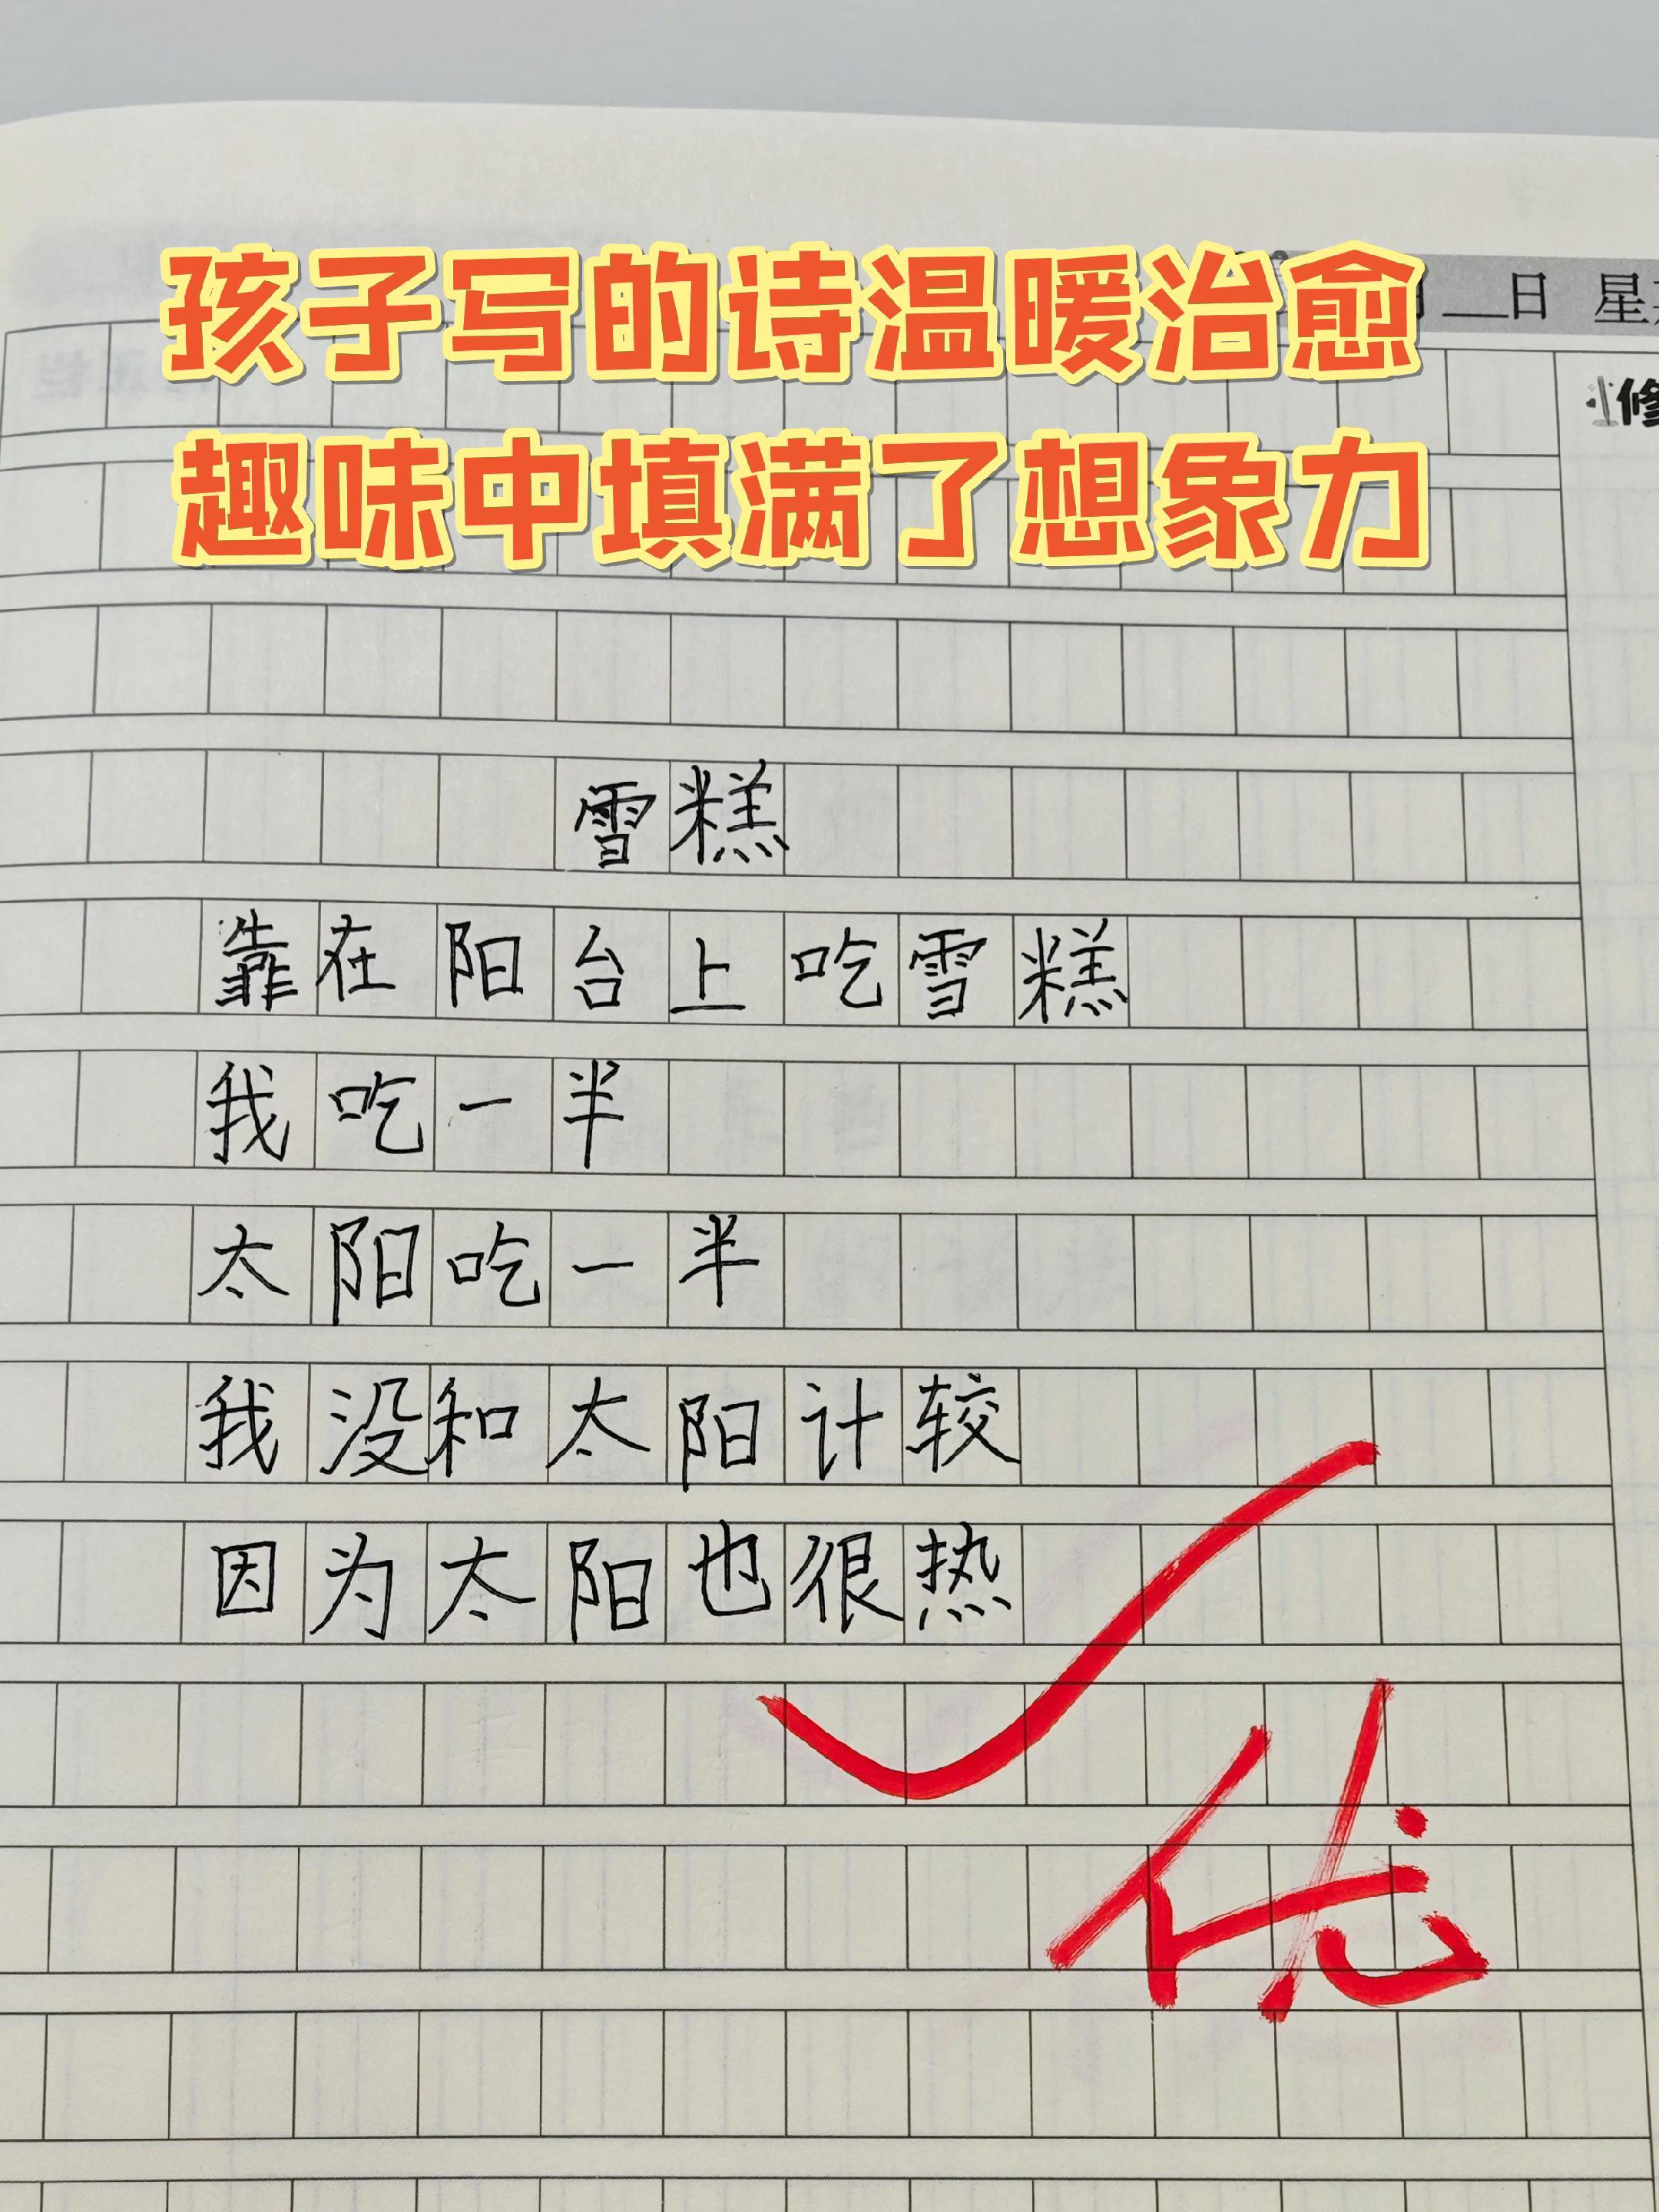 孩子写的诗温暖治愈
趣味中填满了想象力
日 星
修
雪糕
靠在阳台上吃雪糕
我吃一半
太阳吃一半
我没和太阳计较
因为太阳也很热
优